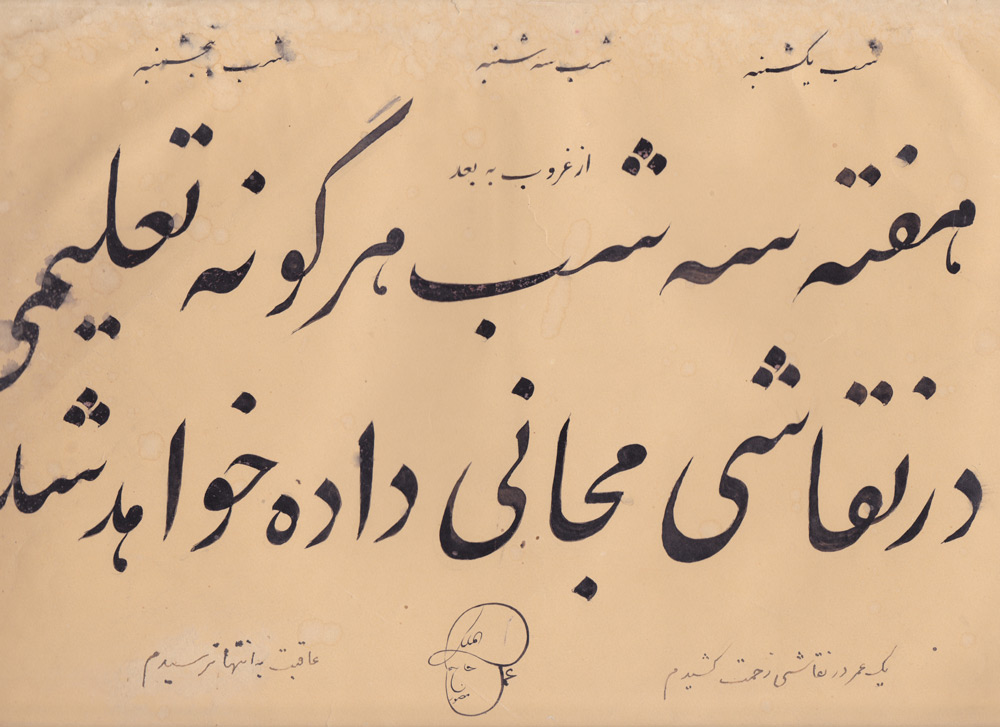 شب یکشنبه شب سه شنبه شب پنجشنبه
از غروب به بعد
هفته سه شب هرگونه تعلیمی
در نقاشی مجانی داده خواهد شد
یک عمر در نقاشی زحمت کشیدم عاقبت به انتها نرسیدم